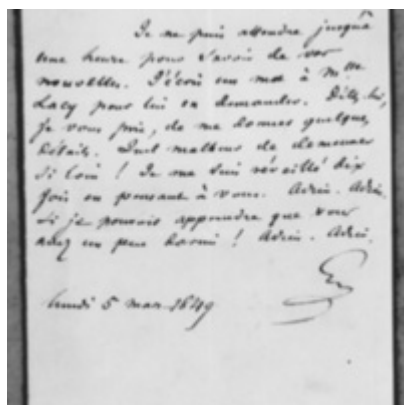 Je ne puis attendre jusqu'à
une heure pour savoir de vos
nouvelles. J'écris un mot à Mme
Lacy pour lui en demander. Dites lui,
je vous prie, de me donner quelques
détails. Quel malheur de demeurer
si loin ! Je me suis réveillé dix
fois en pensant à vous. Adieu. Adieu.
Si je pouvois apprendre que vous
avez un peu dormi ! Adieu. Adieu.
lundi 5 mars 1849